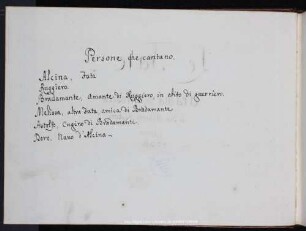 Persone, che cantano.
Alcina, Fata
Ruggiero
Bradamante, Amante di Ruggiero, in abito di guerriero.
Melissa, altra Fata amica di Bradamante
Astolfo, Cugino di Bradamante
Nano d'Alcina